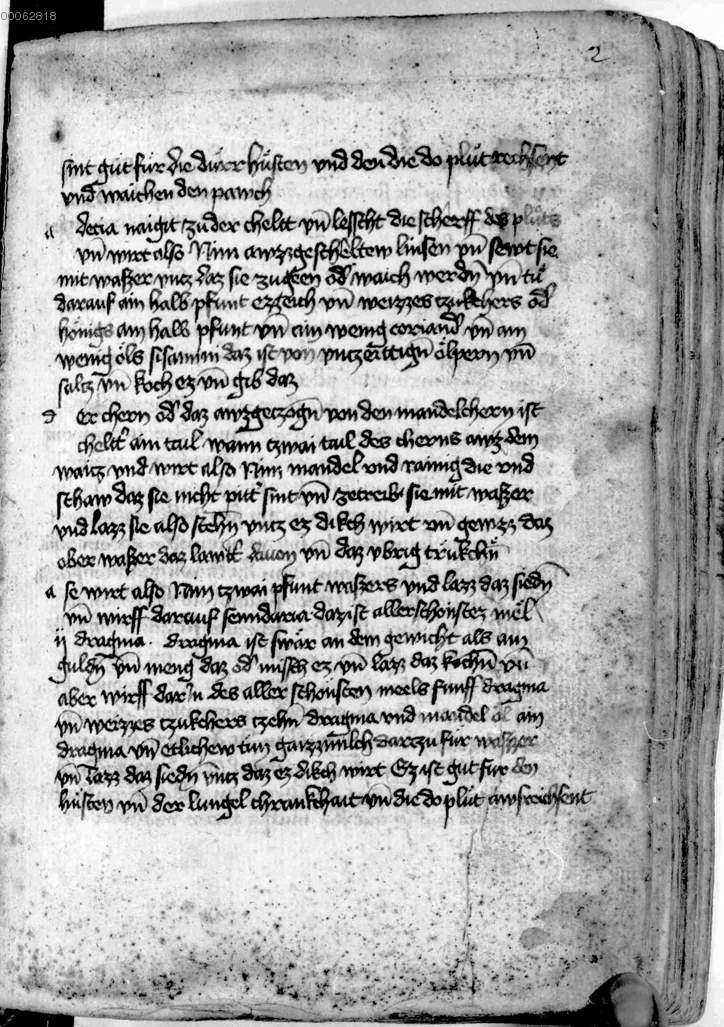 00062818
2
sint güt für die dürr hüsten vnd den die do plüt rechsent
vnd waichen den pawch
a decia naigt zu der cheltt vn̄ lesscht die scherff des plüts
vn̄ wirt also Nim awzzgescheltew linsen vn̄ sewt sie
mit waszer vncz daz sie zugeen od̕ waich werdn̄ vn̄ tů
darauf ain halb pfunt ezzeich vn̄ weizzes tzukchers od̕
hönigs ain halb pfunt vn̄ ain wenig coriand̕ vn̄ ain
wenig öls sisamini daz ist von vnczeittign̄ ölpern vn̄
saltz vn̄ koch ez vn̄ gib daz
d er chern od̕ daz awzgeczogn̄ von den mandelchern ist
cheltt̕ ain tail wann tzwai tail des cherns awz dem
waitz vnd wirt also Nim mandel vnd rainig die vnd
schaw daz sie nicht pitt̕ sint vn̄ zetreib sie mit waszer
vnd lazz sie also stehn̄ vncz ez dikch wirt vn̄ gewzz daz
ober waszer daz lawtt̕ dauon vn̄ daz vbrig trükchn̄
a se wirt also Nim tzwai pfunt waszers vnd lazz daz siedn̄
vn̄ wirff darauf semidaria daz ist allerschönstez mel
ij dragma · dragma ist swär an dem gewicht als ain
guldn̄ vn̄ meng daz od̕ misch ez vn̄ lazz daz kochn̄ vn̄
aber wirff dar̕n des aller schönsten meels funff dragma
vn̄ weizzes tzukchers tzehn̄ dragma vnd mandel öl ain
dragma vn̄ etlichew tun gaizzmilch dartzu für waszer
vn̄ lazz daz siedn̄ vncz daz ez dikch wirt Ez ist gut für den
hüsten vn̄ der lungel chrankchait vn̄ die do plüt awsrechsent